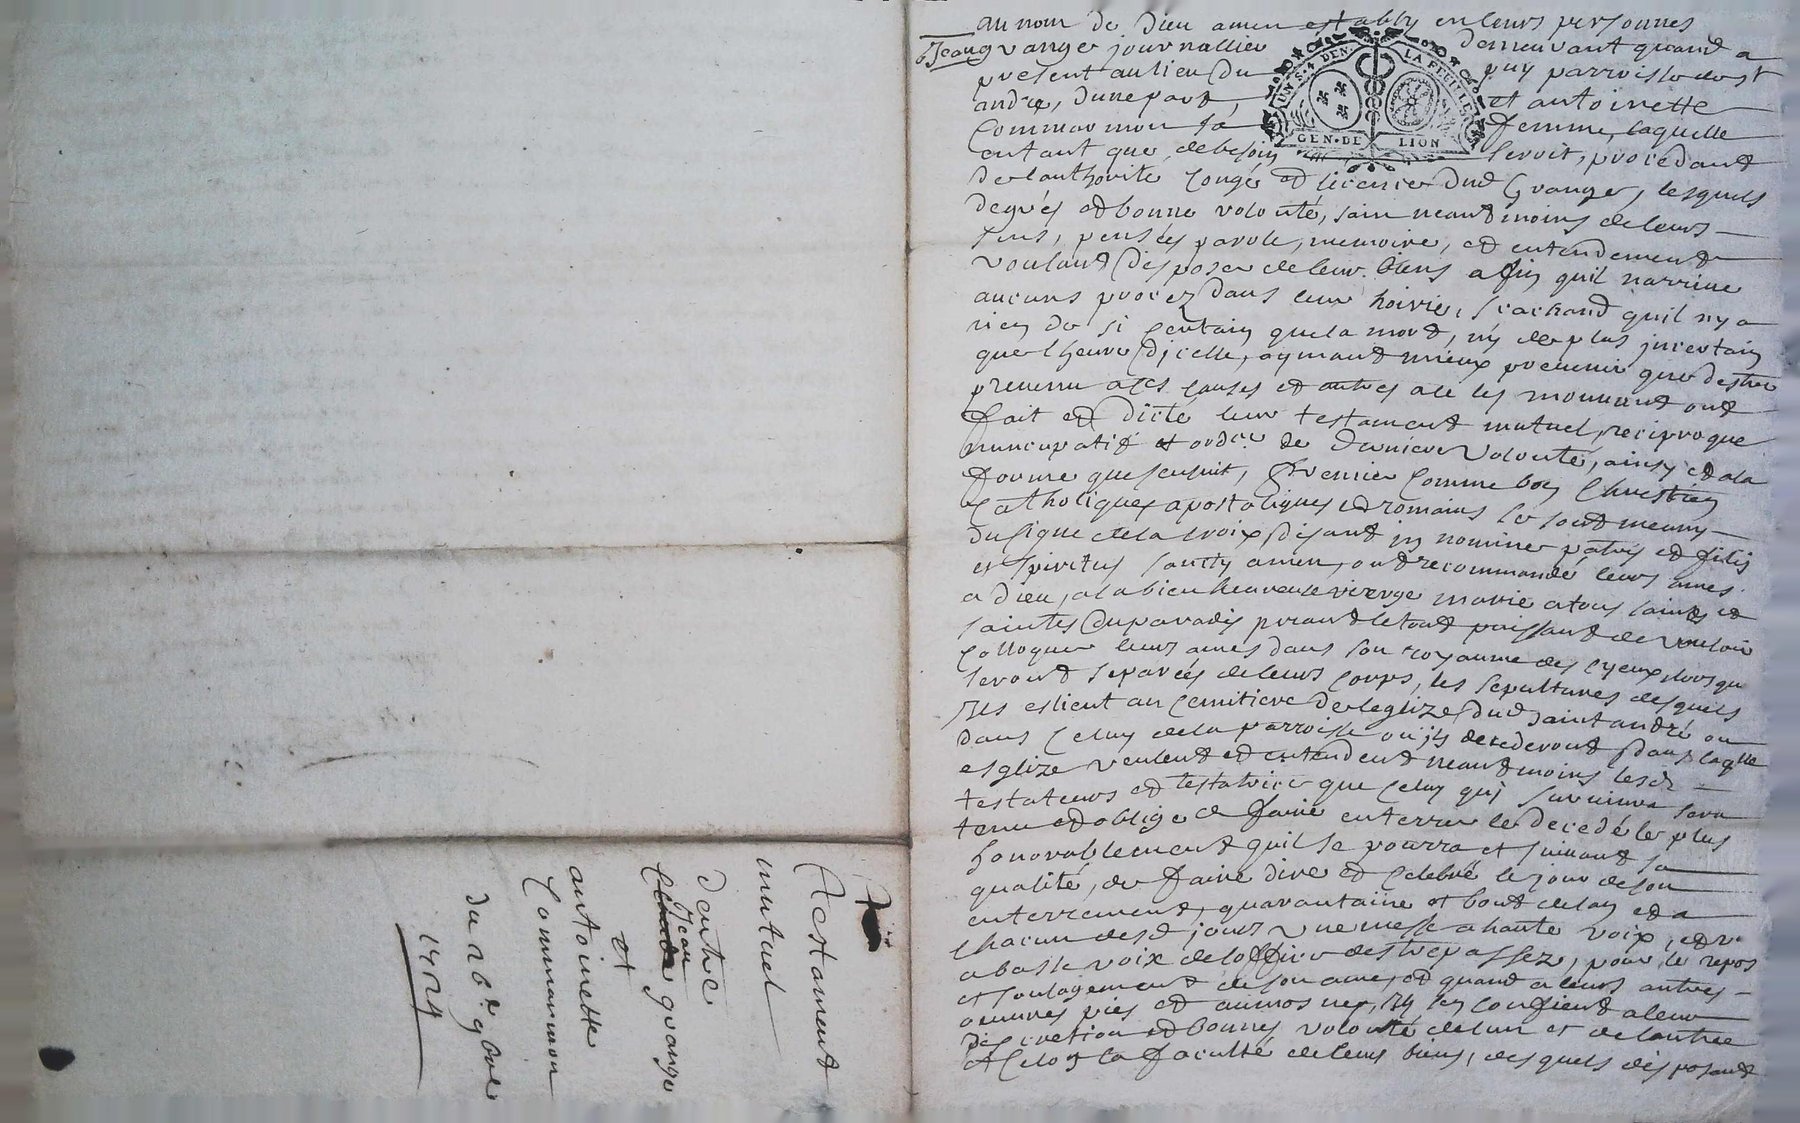 au nom de dieu amen establÿ en leurs personnes
Jean grange journallier demeurant quand a
present au lieu du puy parroisse de st
andre, dune part, et antoinette
Commarmon sa femme, laquelle
en tant que de besoin seroit, procedant
de lauthorite congé et licence dud Grange, lesquels
de gres et bonne volonté, sain neantmoins de leurs
sens, pensées parole, memoire, et entendement
voulant disposer de leur biens afin quil narrive
aucuns procez dans leur hoirie, scachand quil ny a
rien de si certain que la mort, ny de plus jncertain
que lheure dicelle, aymant mieux prevenir que destre
prevenu a ces causes et autres a ce les mouvant ont
fait et dicté leur testament mutuel, reciproque
nuncupatif et ordre de derniere volonté, ainsy et a la
forme que sensuit, Premier comme bon Chrestien
Catholiques apostoliques et romains se sont meuny
du signe de la croix disant jn nomine patris et filis
et spiritus sancty amen, ont recommandé leurs ames
a dieu, a la bien heureuse vierge marie a tous saints et
saintes du paradis priant le tout puissant de vouloir
colloquer leurs ames dans son royaume des cyeux lors qu
seront separées de leurs corps, les sepultures desquels
Jls eslient au cemitiere de leglize dud saint andré ou
dans celuy de la parroisse ou jls decederont dans laqlle
esglize veulent et entendent neantmoins lesd
testateurs et testatrice que celuy qui survivra sera
tenu et oblige de faire enterrer le decedé le plus
honorablement quil se pourra et suivant sa
qualité, de faire dire et celebré le jour de son
enterrement, quarantaine et bout de lan et a
chacun desd jours une messe a haute voix, et
a basse voix de loffice des trepassez, pour le repos
et soulagement de son ame, et quand a leurs autres
oeuvres pies et aumosnes, sen confient a leur
discretion et bonnes volonté de lun et de lautre
et selon la faculté de leurs biens, desquels disposant
Testament
mutuel
dentre
Jean
Claude grange
et
antoinette
Commarmon
du 26e 9bre
1724
UN.S.4 DEN. LA FEUILLE
GEN.DE LION